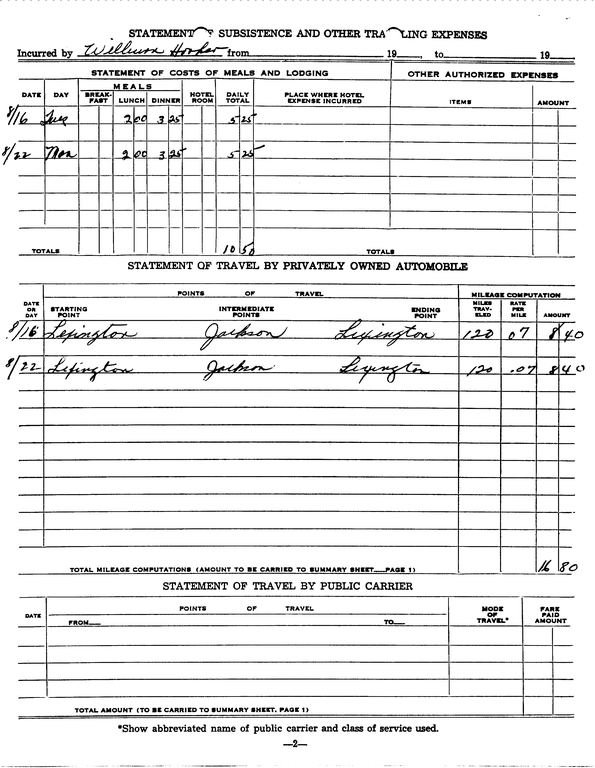 STATEMENT OF SUBSISTENCE AND OTHER TRAVELING EXPENSES
Incurred by Wilburn Hooker from 19 , to 19
STATEMENT OF COSTS OF MEALS AND LODGING OTHER AUTHORIZED EXPENSES
DATE DAY MEALS BREAK-FAST LUNCH DINNER HOTEL ROOM DAILY TOTAL PLACE WHERE HOTEL EXPENSE INCURRED ITEMS AMOUNT
8/16 Tues 2 00 3 25 5 25
8/22 Mon 2 00 3 25 5 25
TOTALS 10 50 TOTALS
STATEMENT OF TRAVEL BY PRIVATELY OWNED AUTOMOBILE
POINTS OF TRAVEL MILEAGE COMPUTATION
DATE OR DAY STARTING POINT INTERMEDIATE POINTS ENDING POINT MILES TRAV-ELED RATE PER MILE AMOUNT
8/16 Lexington Jackson Lexington 120 07 8 40
8/22 Lexington Jackson Lexington 120 .07 8 40
TOTAL MILEAGE COMPUTATIONS (AMOUNT TO BE CARRIED TO SUMMARY SHEET PAGE 1) 16 80
STATEMENT OF TRAVEL BY PUBLIC CARRIER
DATE POINTS OF TRAVEL MODE OF TRAVEL* FARE PAID AMOUNT
FROM TO
TOTAL AMOUNT (TO BE CARRIED TO SUMMARY SHEET, PAGE 1)
*Show abbreviated name of public carrier and class of service used.
—2—